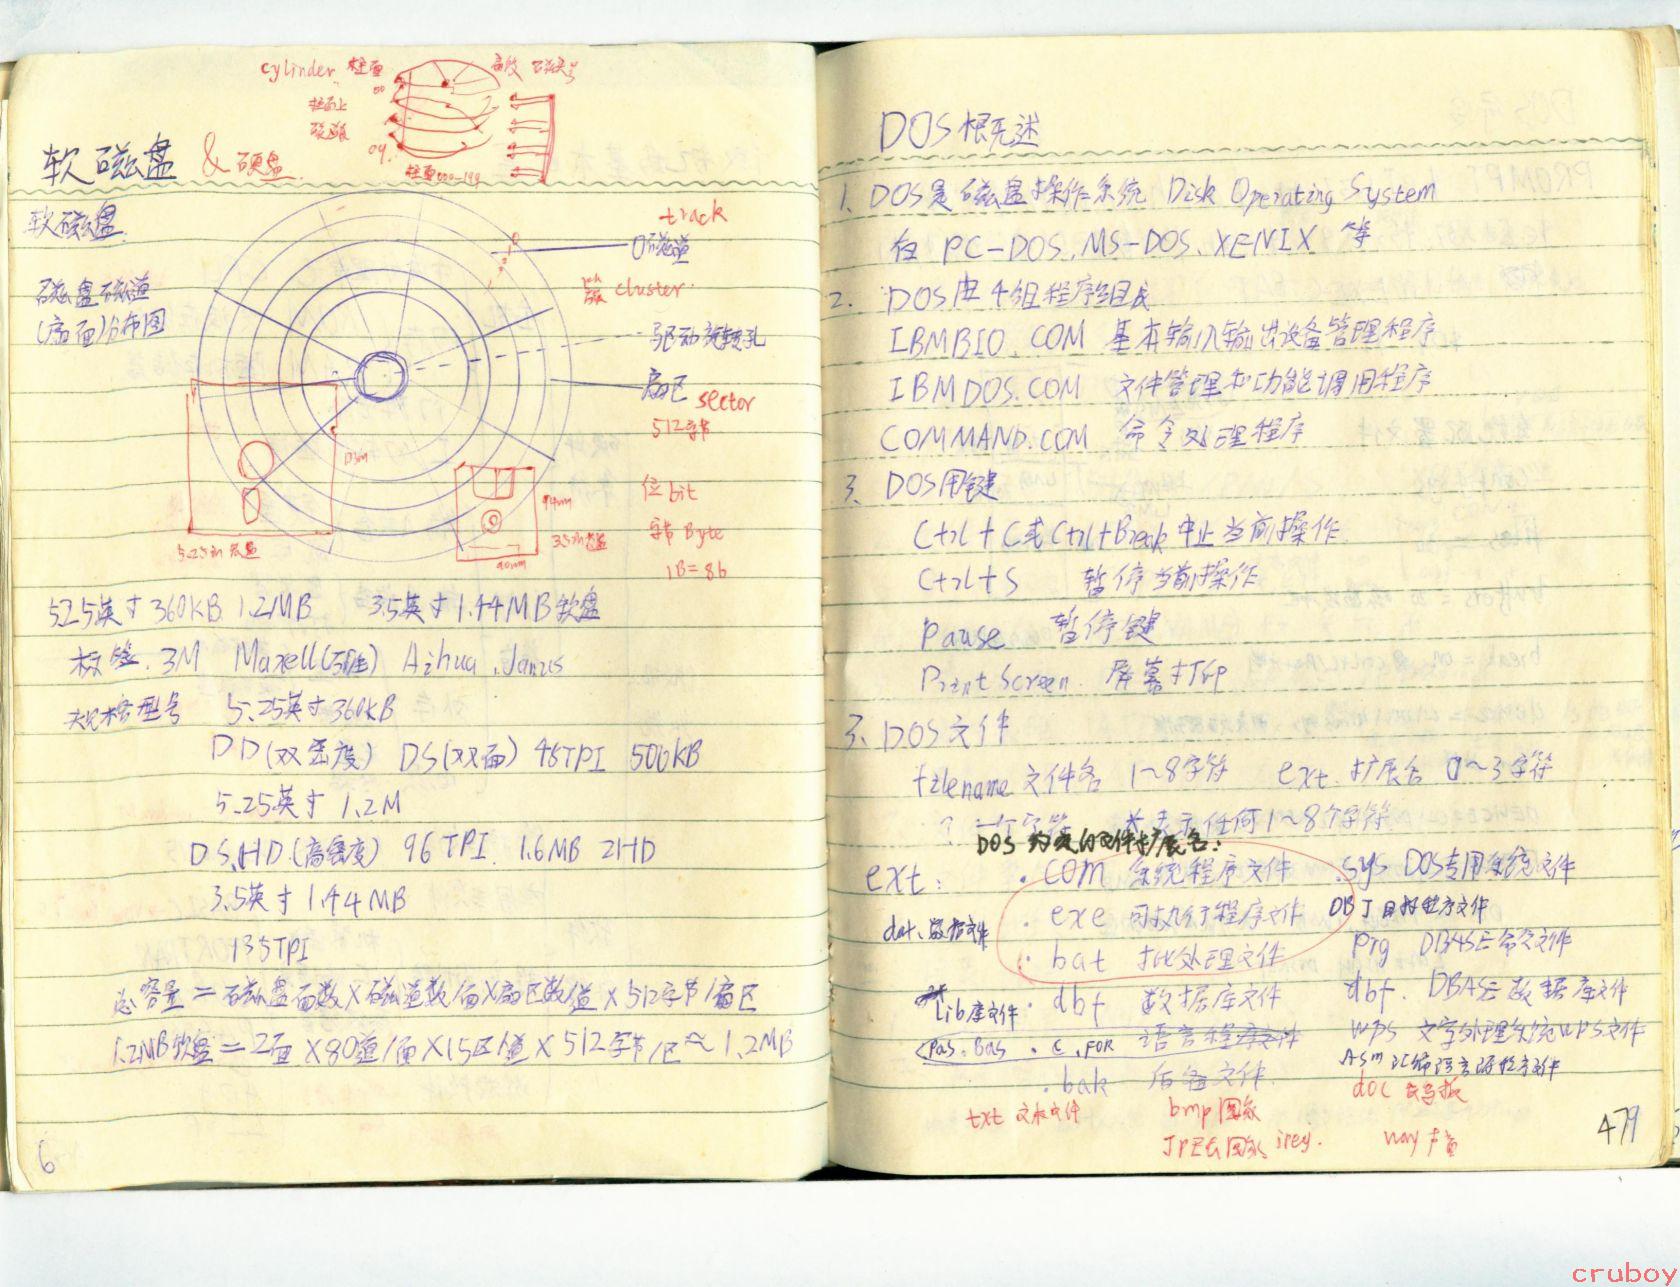 cylinder 柱面
扇段 磁头号
00
柱面上
磁道
04.
柱面000-199
软磁盘 & 硬盘.
软磁盘.
track
0磁道
磁盘磁道
(扇面)分布图
簇 cluster.
驱动旋转孔
扇区 sector
512字节
位 bit
94mm
字节 Byte
5.25in 软盘
3.5in 软盘
90mm
1B=8b
5.25英寸 360KB 1.2MB 3.5英寸 1.44MB 软盘
标签. 3M Maxell Aihua. Janus
规格型号 5.25英寸 360KB
DD(双密度) DS(双面) 48TPI 500KB
5.25英寸 1.2M
DS,HD.(高密度) 96TPI. 1.6MB 2HD
3.5英寸 1.44MB
135TPI
总容量=磁盘面数×磁道数/面×扇区数/道×512字节/扇区
1.2MB软盘=2面×80道/面×15区/道×512字节/区≈1.2MB
6
DOS概述
1、DOS是磁盘操作系统 Disk Operating System
有 PC-DOS、MS-DOS、XENIX 等
2. DOS由4组程序组成
IBMBIO.COM 基本输入输出设备管理程序
IBMDOS.COM 文件管理和功能调用程序
COMMAND.COM 命令处理程序
3、DOS用键
Ctrl+C或Ctrl+Break 中止当前操作.
Ctrl+S 暂停当前操作
Pause 暂停键
Print Screen. 屏幕打印
3、DOS文件
filename 文件名 1~8字符 ext. 扩展名 0~3字符
? 一个字符 *表示任何1~8个字符
DOS 约定的文件扩展名:
ext: .com 系统程序文件 .sys DOS专用系统文件
dat、数据文件 .exe 可执行程序文件 OBJ 目标程序文件
.bat 批处理文件 prg DBASE命令文件
Lib库文件 .dbf 数据库文件 dbf. DBASE数据库文件
Pas. Bas .C .FOR 语言程序文件 WPS 文字处理系统WPS文件
ASM 汇编语言源程序文件
.bak 后备文件
txt 文本文件 bmp图象 doc
JPEG图象 wav 声音
479
cruboy